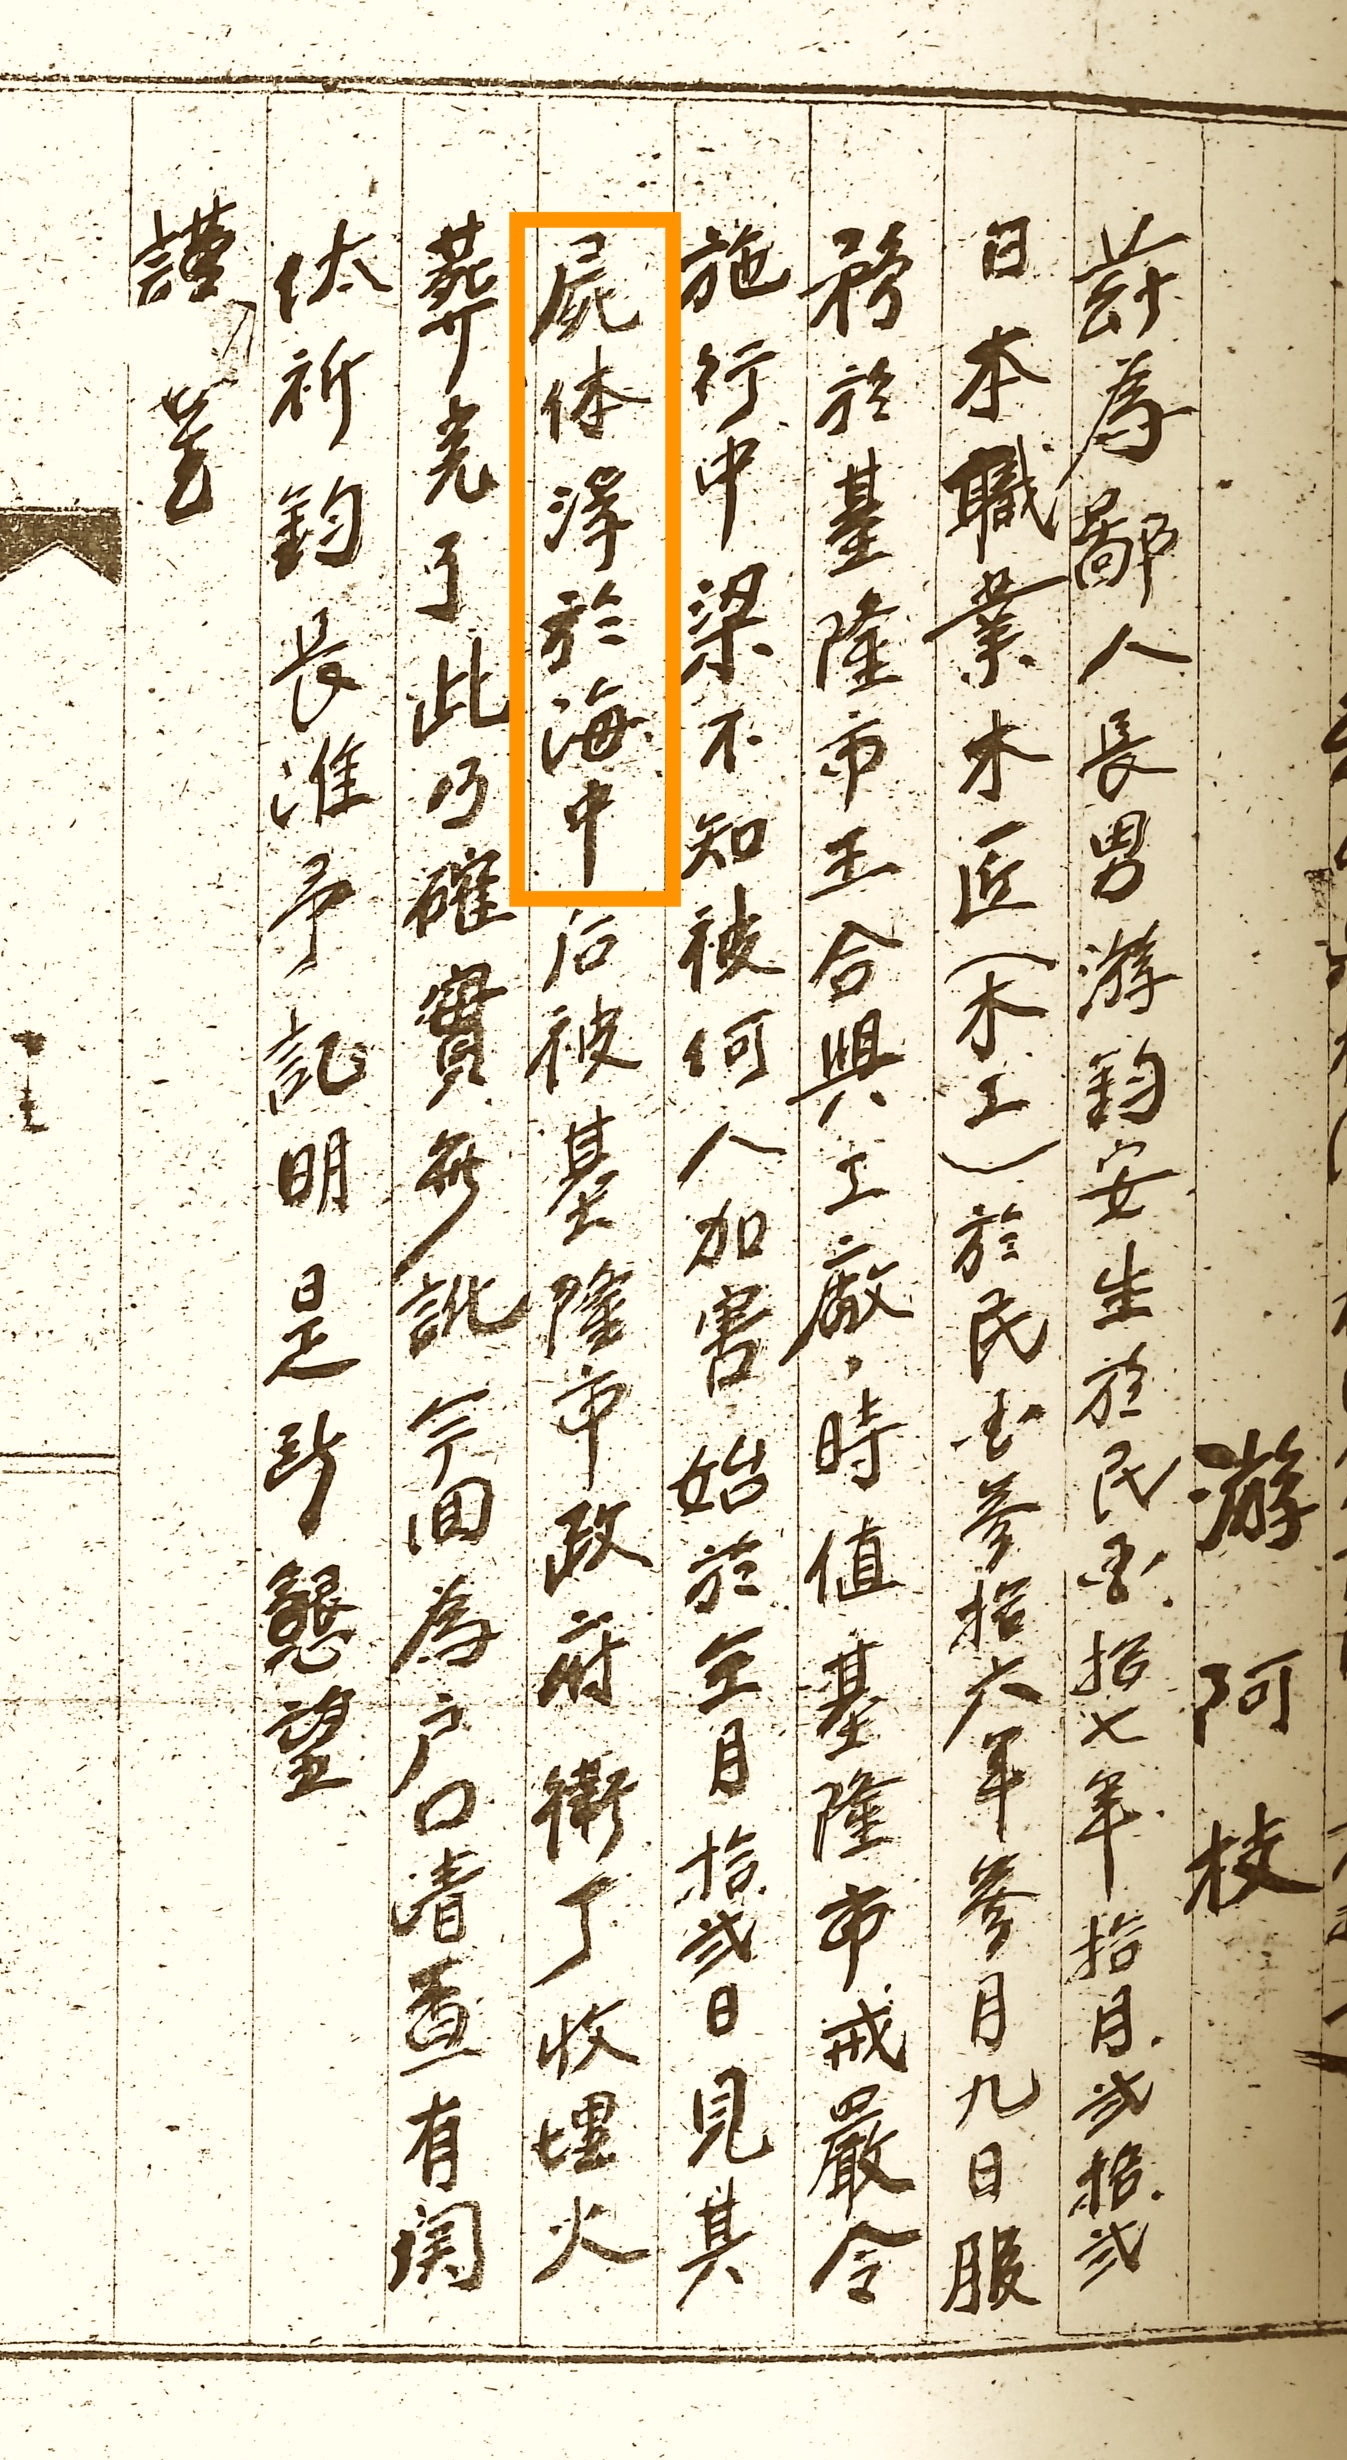 游阿枝
茲為鄙人長男游鈞安生於民國拾七年拾月弍拾弍
日本職業木匠(木工)於民國参拾六年参月九日服
務於基隆市王合興工廠,時值基隆市戒嚴令
施行中梁不知被何人加害始於仝月拾弍日見其
屍体浮於海中后被基隆市政府衛丁收埋火
葬完了此乃確實無訛今回為户口清查有関
伏祈鈞長准予記明是所懇望
謹